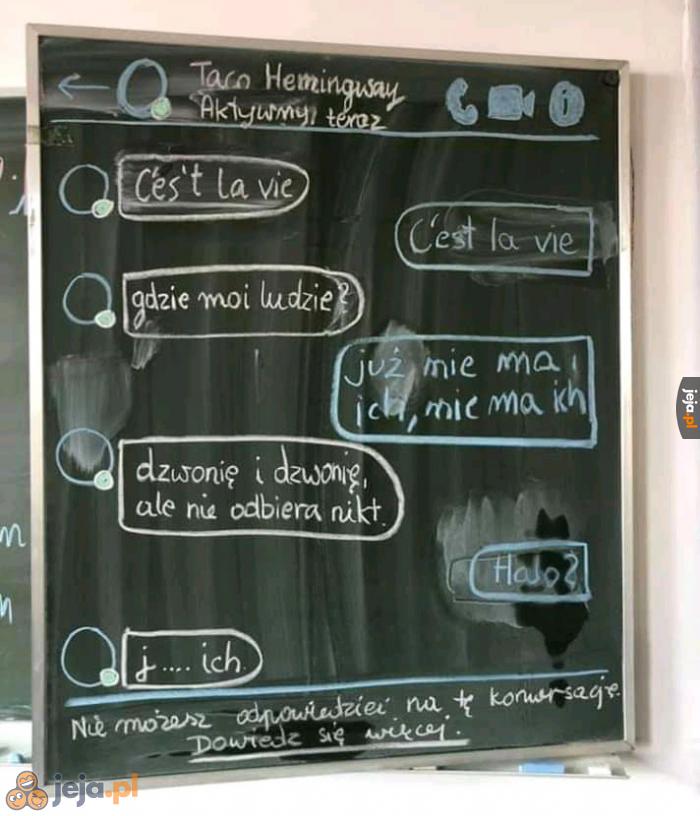 Taco Hemingway
Aktywny teraz
Ces't la vie
C'est la vie
gdzie moi ludzie?
już nie ma
ich, nie ma ich
dzwonię i dzwonię,
ale nie odbiera nikt.
Halo?
j.... ich.
Nie możesz odpowiedzieć na tę konwersację.
Dowiedz się więcej.
jeja.pl
jeja.pl